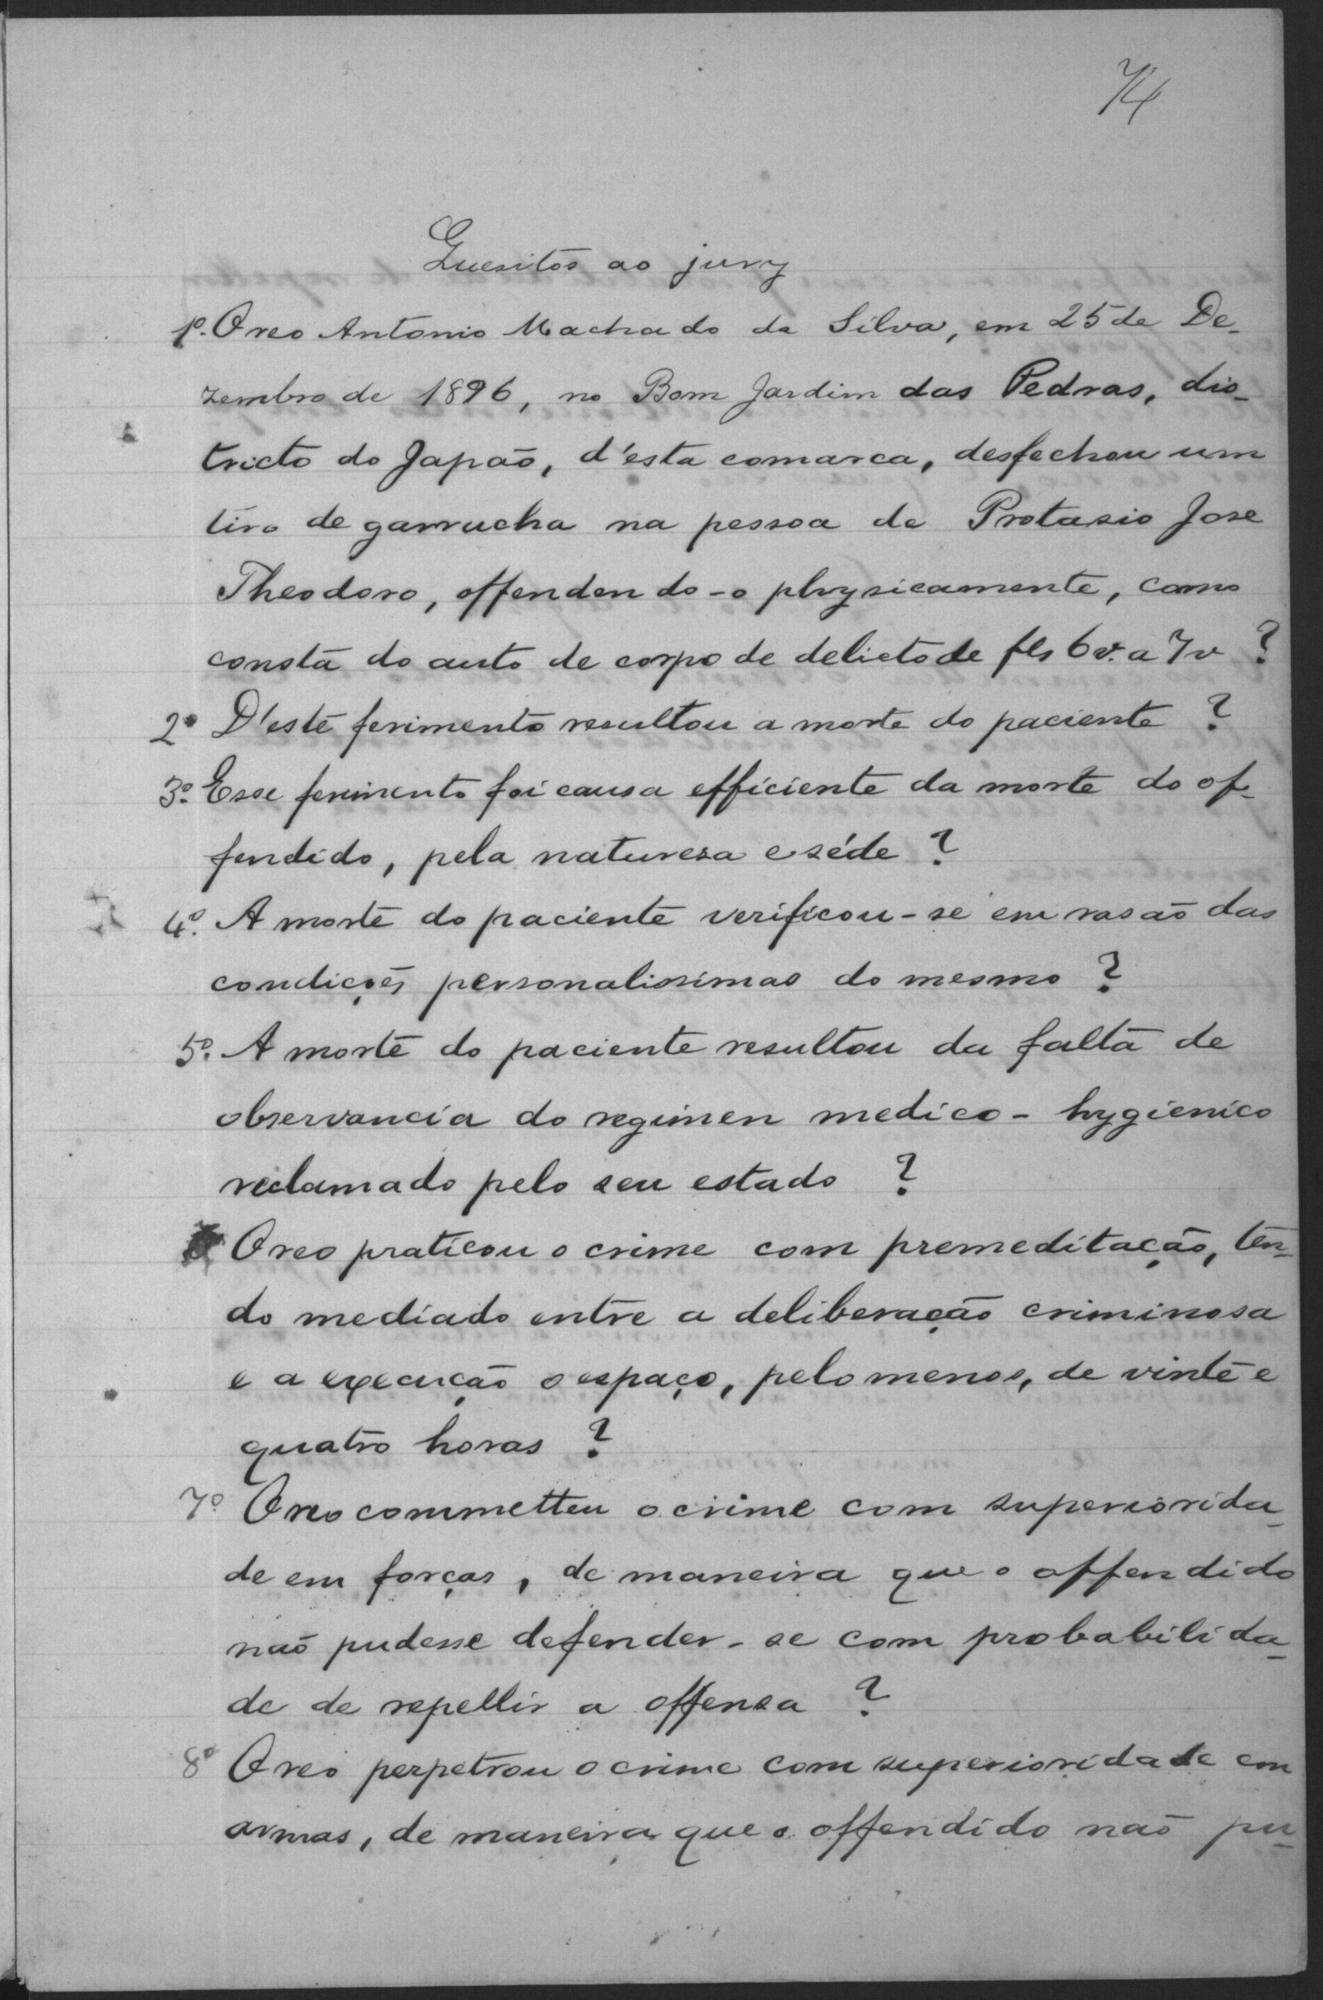 74
Quesitos ao jury
1º. O reo Antonio Machado da Silva, em 25 de De-
zembro de 1896, no Bom Jardim das Pedras, dis-
tricto do Japão, d'esta comarca, desfechou um
tiro de garrucha na pessoa de Protasio Jose
Theodoro, offendendo-o physicamente, como
consta do auto de corpo de delicto de fls 6v. a 7v ?
2º D'este ferimento resultou a morte do paciente ?
3º. Esse ferimento foi causa efficiente da morte do of-
fendido, pela naturesa e séde ?
4º. A morte do paciente verificou-se em rasão das
condições personalissimas do mesmo ?
5º. A morte do paciente resultou da falta de
observancia do regimen medico-hygienico
reclamado pelo seu estado ?
O reo praticou o crime com premeditação, ten-
do mediado entre a deliberação criminosa
e a execução o espaço, pelo menos, de vinte e
quatro horas ?
7º O reo commetteu o crime com superiorida-
de em forças, de maneira que o offendido
não pudesse defender-se com probabilida-
de de repellir a offensa ?
8º O reo perpetrou o crime com superioridade em
armas, de maneira que o offendido não pu-